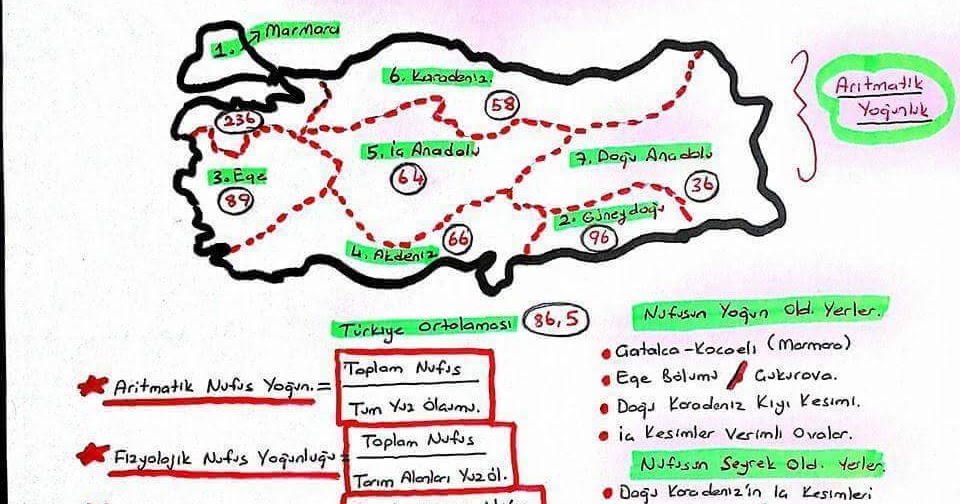 1. Marmara
6. Karadeniz.
58
Aritmatik
Yoğunluk
236
5. İç Anadolu
64
7. Doğu Anadolu
36
3. Ege
89
2. Güneydoğu
96
4. Akdeniz
66
Türkiye Ortalaması 86,5
Aritmatik Nufus Yoğun. = Toplam Nufus
Tum Yuz Ölçumu.
Fizyolojik Nufus Yoğunluğu = Toplam Nufus
Tarım Alanları Yüzöl.
Nufusun Yoğun Old. Yerler.
Çatalca-Kocaeli (Marmara)
Ege Bölumu / Çukurova.
Doğu Karadeniz Kıyı Kesimi.
İç Kesimler Verimli Ovalar.
Nufusun Seyrek Old. Yerler.
Doğu Karadeniz'in İç Kesimleri